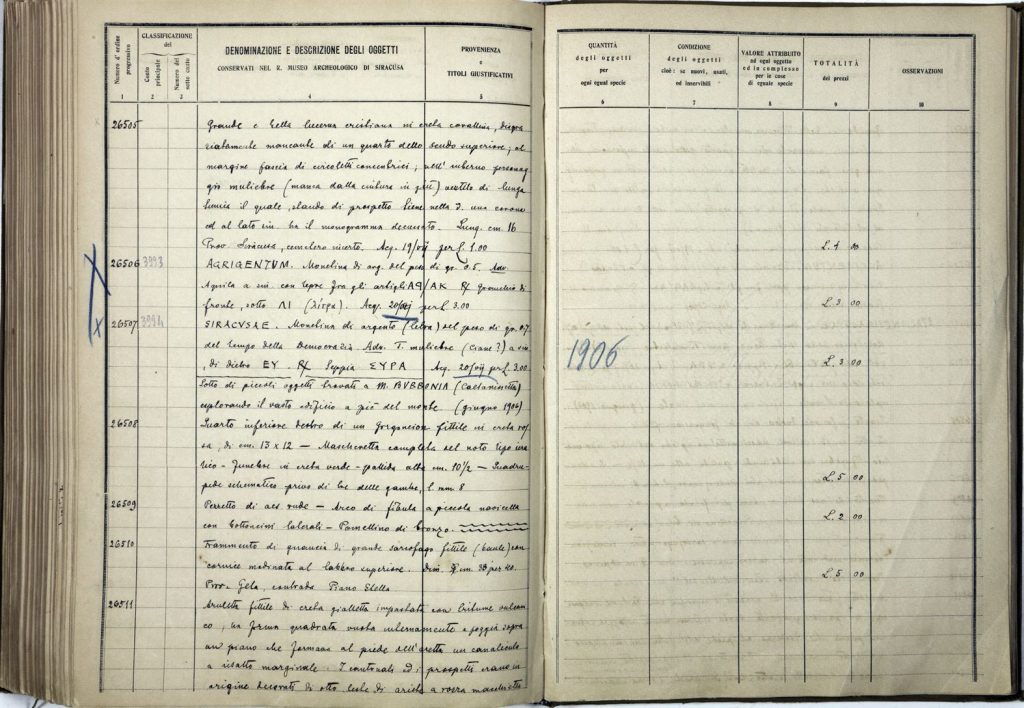 Numero d'ordine progressivo
CLASSIFICAZIONE
del
Conto principale
Numero del sotto conto
DENOMINAZIONE E DESCRIZIONE DEGLI OGGETTI
CONSERVATI NEL R. MUSEO ARCHEOLOGICO DI SIRACUSA
PROVENIENZA
e
TITOLI GIUSTIFICATIVI
1 2 3 4 5
26505 Grande e bella lucerna cristiana in creta corallina, disgra
ziatamente mancante di un quarto dello scudo superiore; al
margine fascia di circoletti concentrici; nell'interno personag
gio muliebre (manca dalla cintura in giù) vestito di lunga
tunica il quale, stando di prospetto tiene nella d. una corona
ed al lato sin. ha il monogramma decussato. Lung. cm. 16
Prov. Siracusa, cimitero incerto. Acq. 19/VII per L.
26506 3993 AGRIGENTVM. Monetina di arg. del peso di gr. 0.5. Adv.
Aquila a sin con lepre fra gli artigli ΑΡ/ΑΚ R/ Granchio di
fronte, sotto ΛΙ (λίτρα). Acq. 20/VII per L 3.00
26507 3994 SIRACVSAE. Monetina di argento (litra) del peso di gr. 0.7
del tempo della Democrazia. Adv. T. muliebre (Ciane?) a sin
, di dietro ΕΥ. R/ Seppia ΣΥΡΑ Acq. 20/VII per L. 3.00
Lotto di piccoli oggetti trovati a M. BVBBONIA (Caltanissetta)
esplorando il vasto edificio a piè del monte (giugno 1906)
26508 Quarto inferiore destro di un Gorgoneion fittile in creta ros
sa, di cm. 13 x 12 — Mascheretta completa del noto tipo iera
tico-funebre in creta verde-pallida alta cm. 10½ — Quadru-
pede schematico privo di tre delle gambe, l mm. 8
26509 Pezzetto di aes rude — Arco di fibula a piccola navicella
con bottoncini laterali — Pomellino di bronzo.
26510 Frammento di guancia di grande sarcofago fittile (baule) con
cornice modinata al labbro superiore. Dim. cm. 33 per 40.
Prov. Gela, contrada Piano Stella
26511 Aruletta fittile di creta gialletta impastata con tritume vulcani
co, in forma quadrata vuota internamente e poggia sopra
un piano che formava al piede dell'aretta un canaliculo
a risalto marginale. I contorni ed i prospetti erano in
origine decorati di otto teste di ariete a rozza maschietta
QUANTITÀ
degli oggetti
per
ogni egual specie
CONDIZIONE
degli oggetti
cioè: se nuovi, usati,
od inservibili
VALORE ATTRIBUITO
ad ogni oggetto
ed in complesso
per le cose
di eguale specie
TOTALITÀ
dei prezzi
OSSERVAZIONI
6 7 8 9 10
L. 4 00
L. 3 00
1906
L. 3 00
L. 5 00
L. 2 00
L. 5 00